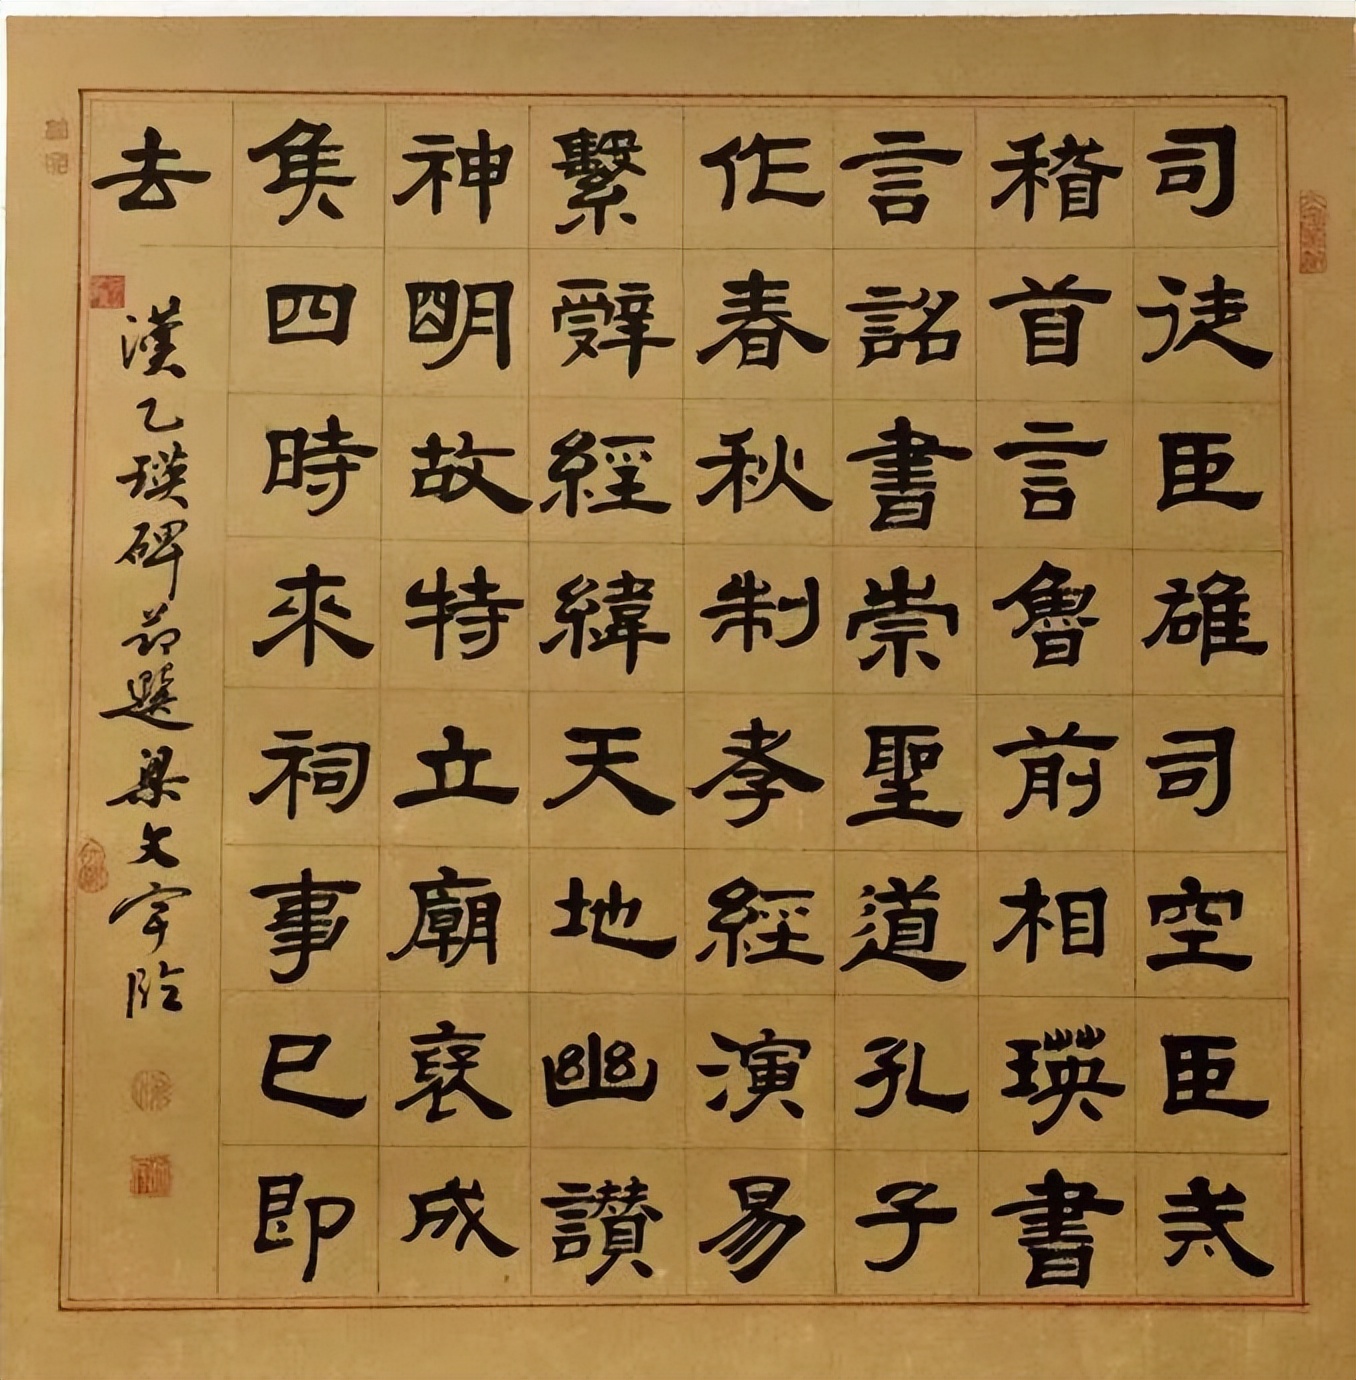 司徒臣雄司空臣戒
稽首言魯前相瑛書
言詔書崇聖道孔子
作春秋制孝經演易
繫辭經緯天地幽讚
神明故特立廟褒成
侯四時來祠事已即
去
漢乙瑛碑節選梁文宇臨